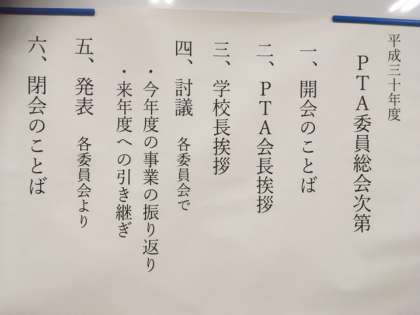 平成三十年度
PTA委員総会次第
一、開会のことば
二、PTA会長挨拶
三、学校長挨拶
四、討議　各委員会で
・今年度の事業の振り返り
・来年度への引き継ぎ
五、発表　各委員会より
六、閉会のことば